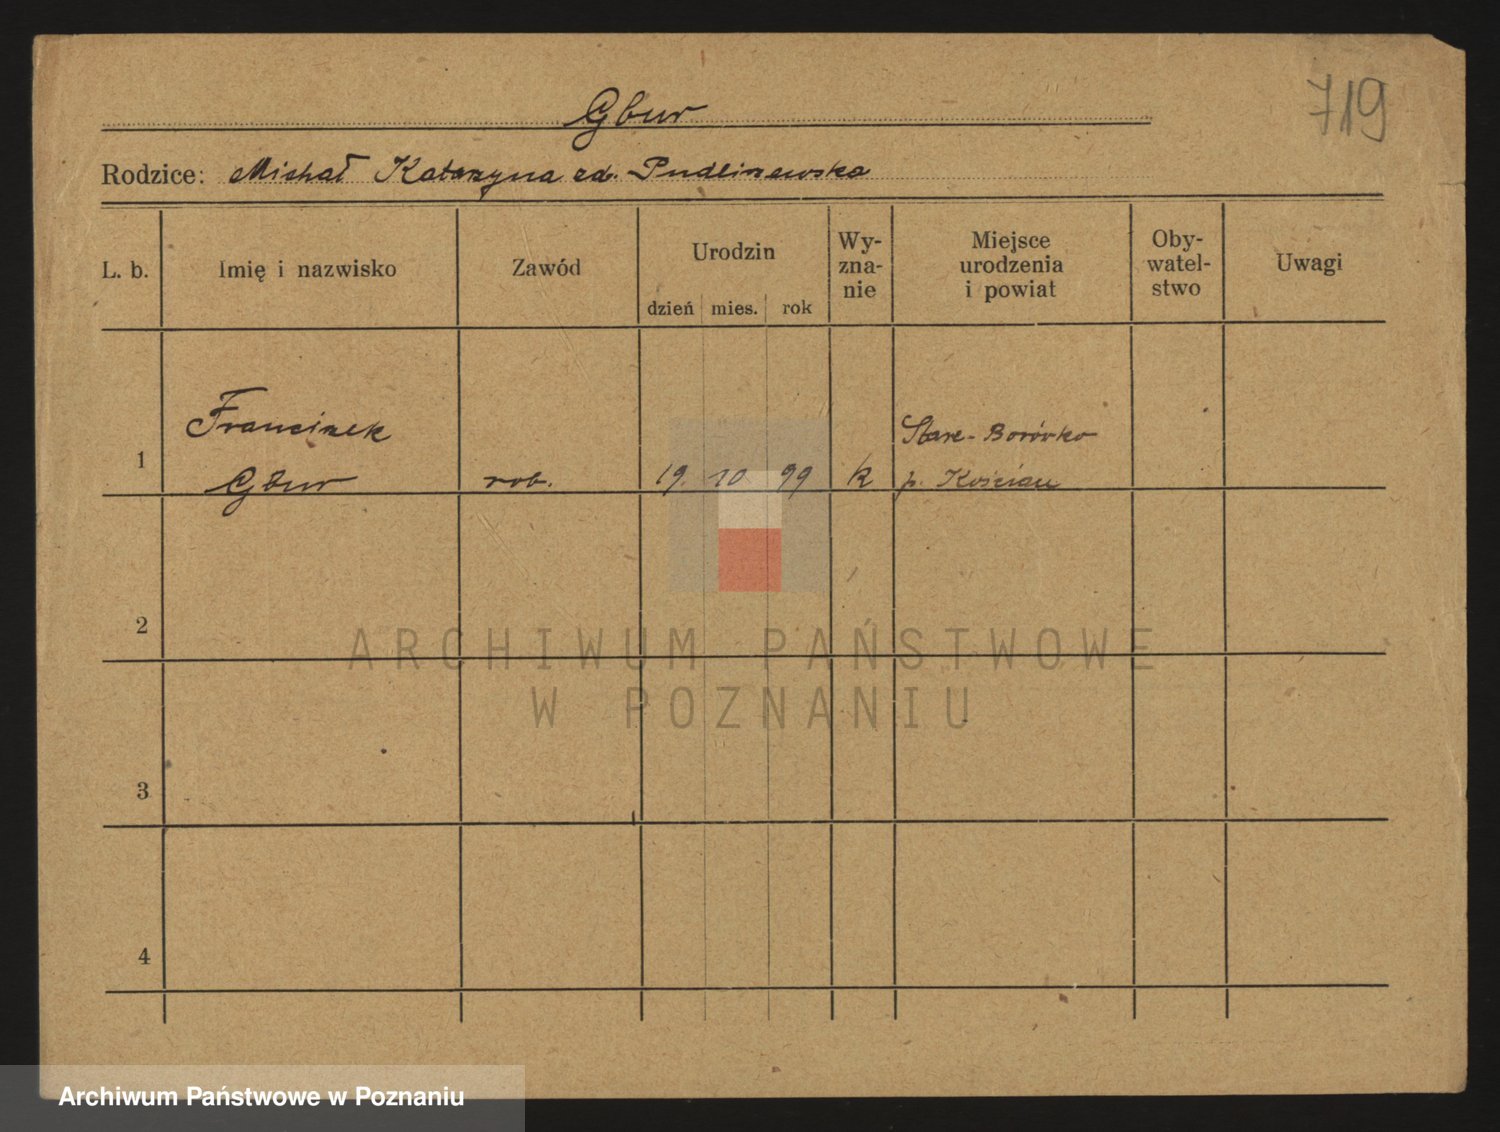 719
Gbur
Rodzice: Michał Katarzyna zd. Pudliszewska
L. b. Imię i nazwisko Zawód Urodzin dzień mies. rok Wy-zna-nie Miejsce urodzenia i powiat Oby-watel-stwo Uwagi
Franciszek Stare-Borówko
1 Gbur rob. 19. 10 99 k p. Kościan
2
3
4
ARCHIWUM PAŃSTWOWE
W POZNANIU
Archiwum Państwowe w Poznaniu